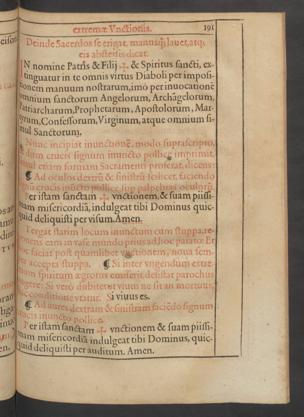 extremæ Vnctionis. 191
Deinde Sacerdos se erigat, manusq; lauet, atq;
eis abstersis dicat.
IN nomine Patris & Filij ✠ & Spiritus sancti, ex-
tinguatur in te omnis virtus Diaboli per imposi-
tionem manuum nostrarum, imò per inuocationē
omnium sanctorum Angelorum, Archāgelorum,
Patriarcharum, Prophetarum, Apostolorum, Mar-
tyrum, Confessorum, Virginum, atque omnium si-
mul Sanctorum.
Tunc incipiat inunctionē, modo suprascripto,
crucis signum inuncto pollice imprimit,
etiam formam Sacramenti proferat, dicens
Ad oculos dextrū & sinistrū scilicet, faciendo
signū crucis inūcto pollice sup palpebras oculorū.
Per istam sanctam ✠ vnctionem, & suam piissi-
mam misericordiā, indulgeat tibi Dominus quic-
quid deliquisti per visum. Amen.
Tergat statim locum inunctum cum stuppa, re-
ponens eam in vase mundo prius ad hoc parato: Et
hoc faciat post quamlibet vnctionem, noua sem-
per accepta stuppa. ¶ Si inter vngendum extre-
mum spiritum ægrotus emiserit, desistat parochus
vngere: Si verò dubitet an viuat ne sit an mortuus,
conditione vtatur. Si viuus es.
¶ Ad aures dextram & sinistram faciēdo signum
crucis inuncto pollice.
Per istam sanctam ✠ vnctionem & suam piissi-
mam misericordiā indulgeat tibi Dominus, quic-
quid deliquisti per auditum. Amen.